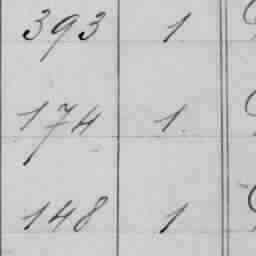 393 1
174 1
148 1